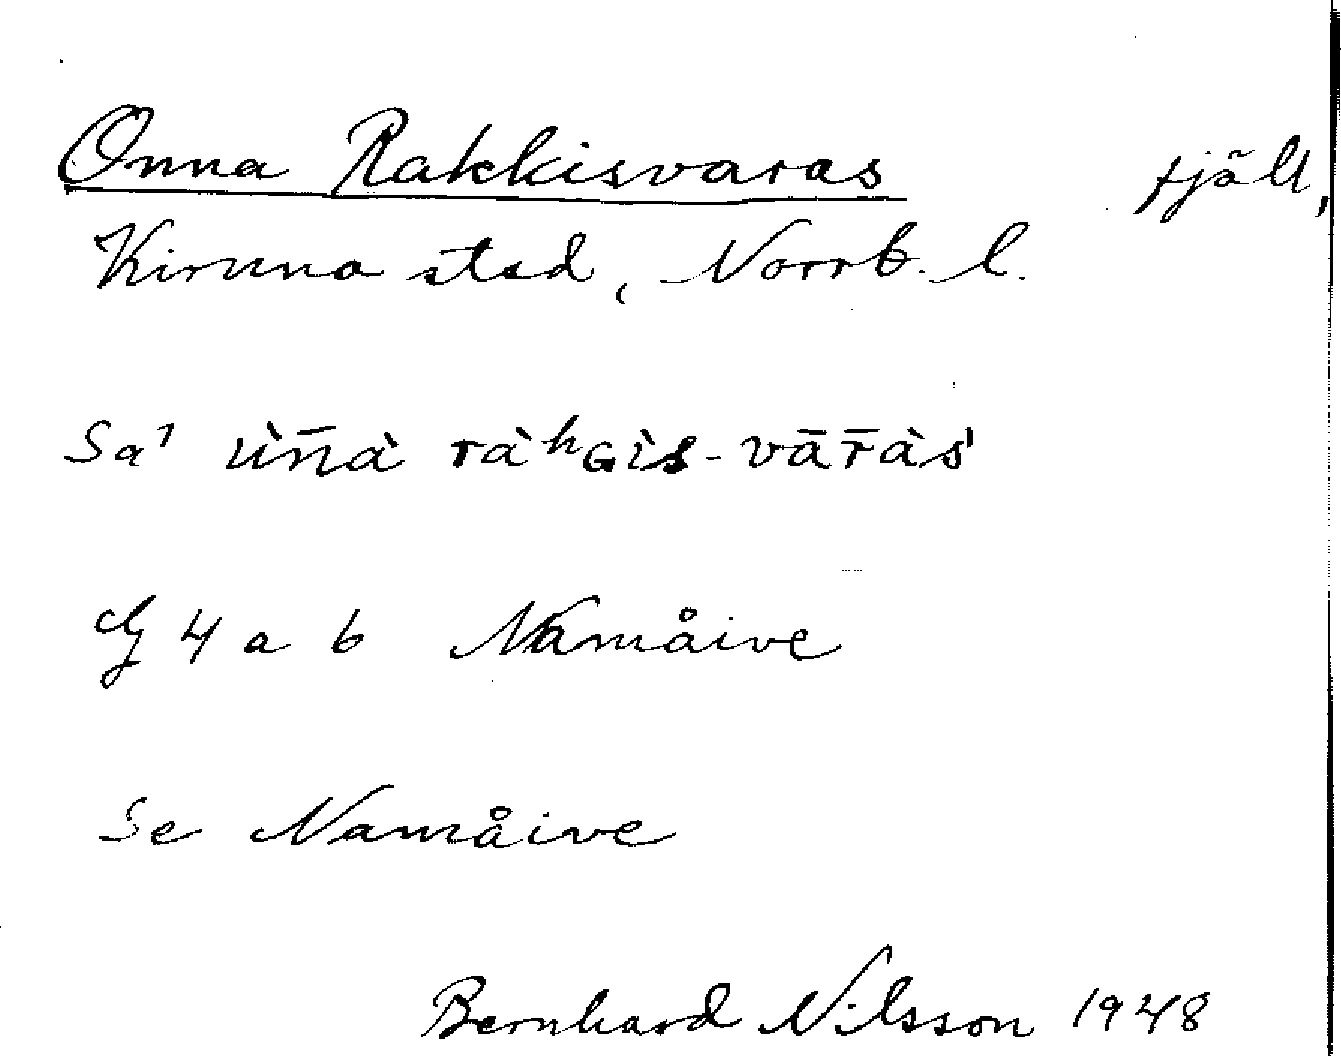 Onna Rakkisvaras fjäll,
Kiruna stad, Norrb. l.
Sa' ùn̄à ràʰGìs-vār̄às'
Ej 4 a b Namåive
Se Namåive
Bernhard Nilsson 1948